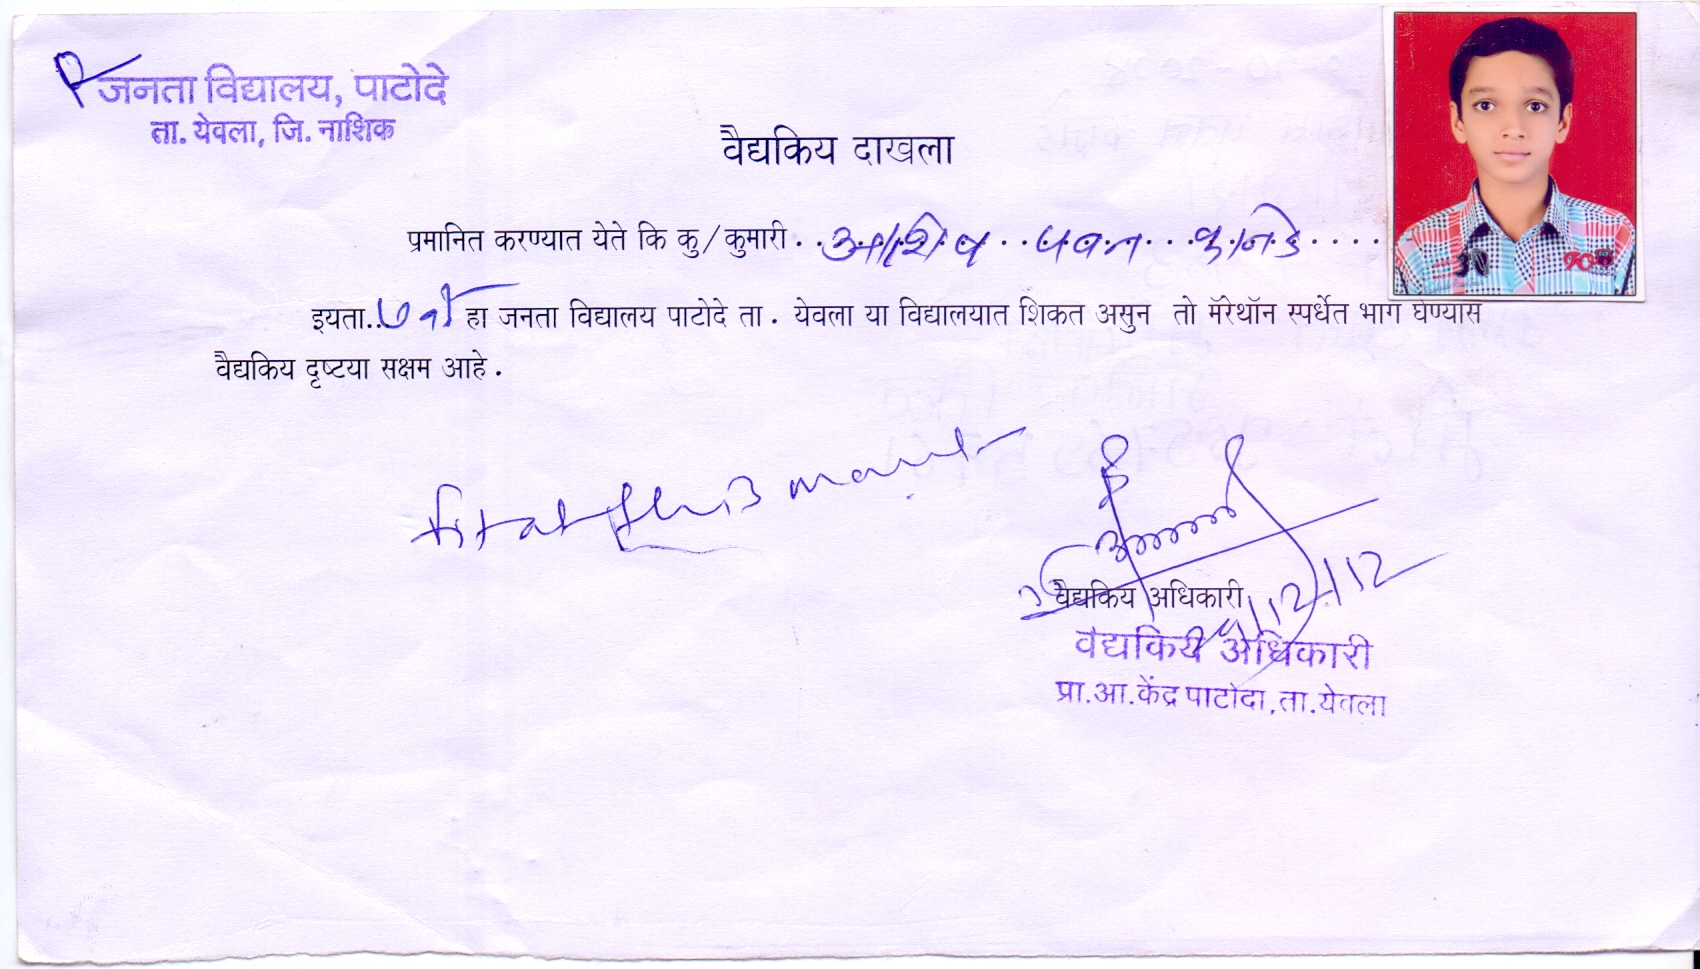 जनता विद्यालय, पाटोदे
ता. येवला, जि. नाशिक
वैद्यकिय दाखला
प्रमानित करण्यात येते कि कु/कुमारी . . आशिष . . पवन . . . कानडे . . . .
इयता.. ७ वी हा जनता विद्यालय पाटोदे ता . येवला या विद्यालयात शिकत असुन तो मॅरेथॉन स्पर्धेत भाग घेण्यास
वैद्यकिय दृष्टया सक्षम आहे .
वैद्यकिय अधिकारी
12/12
वैद्यकिय अधिकारी
प्रा.आ.केंद्र पाटोदा,ता.येवला